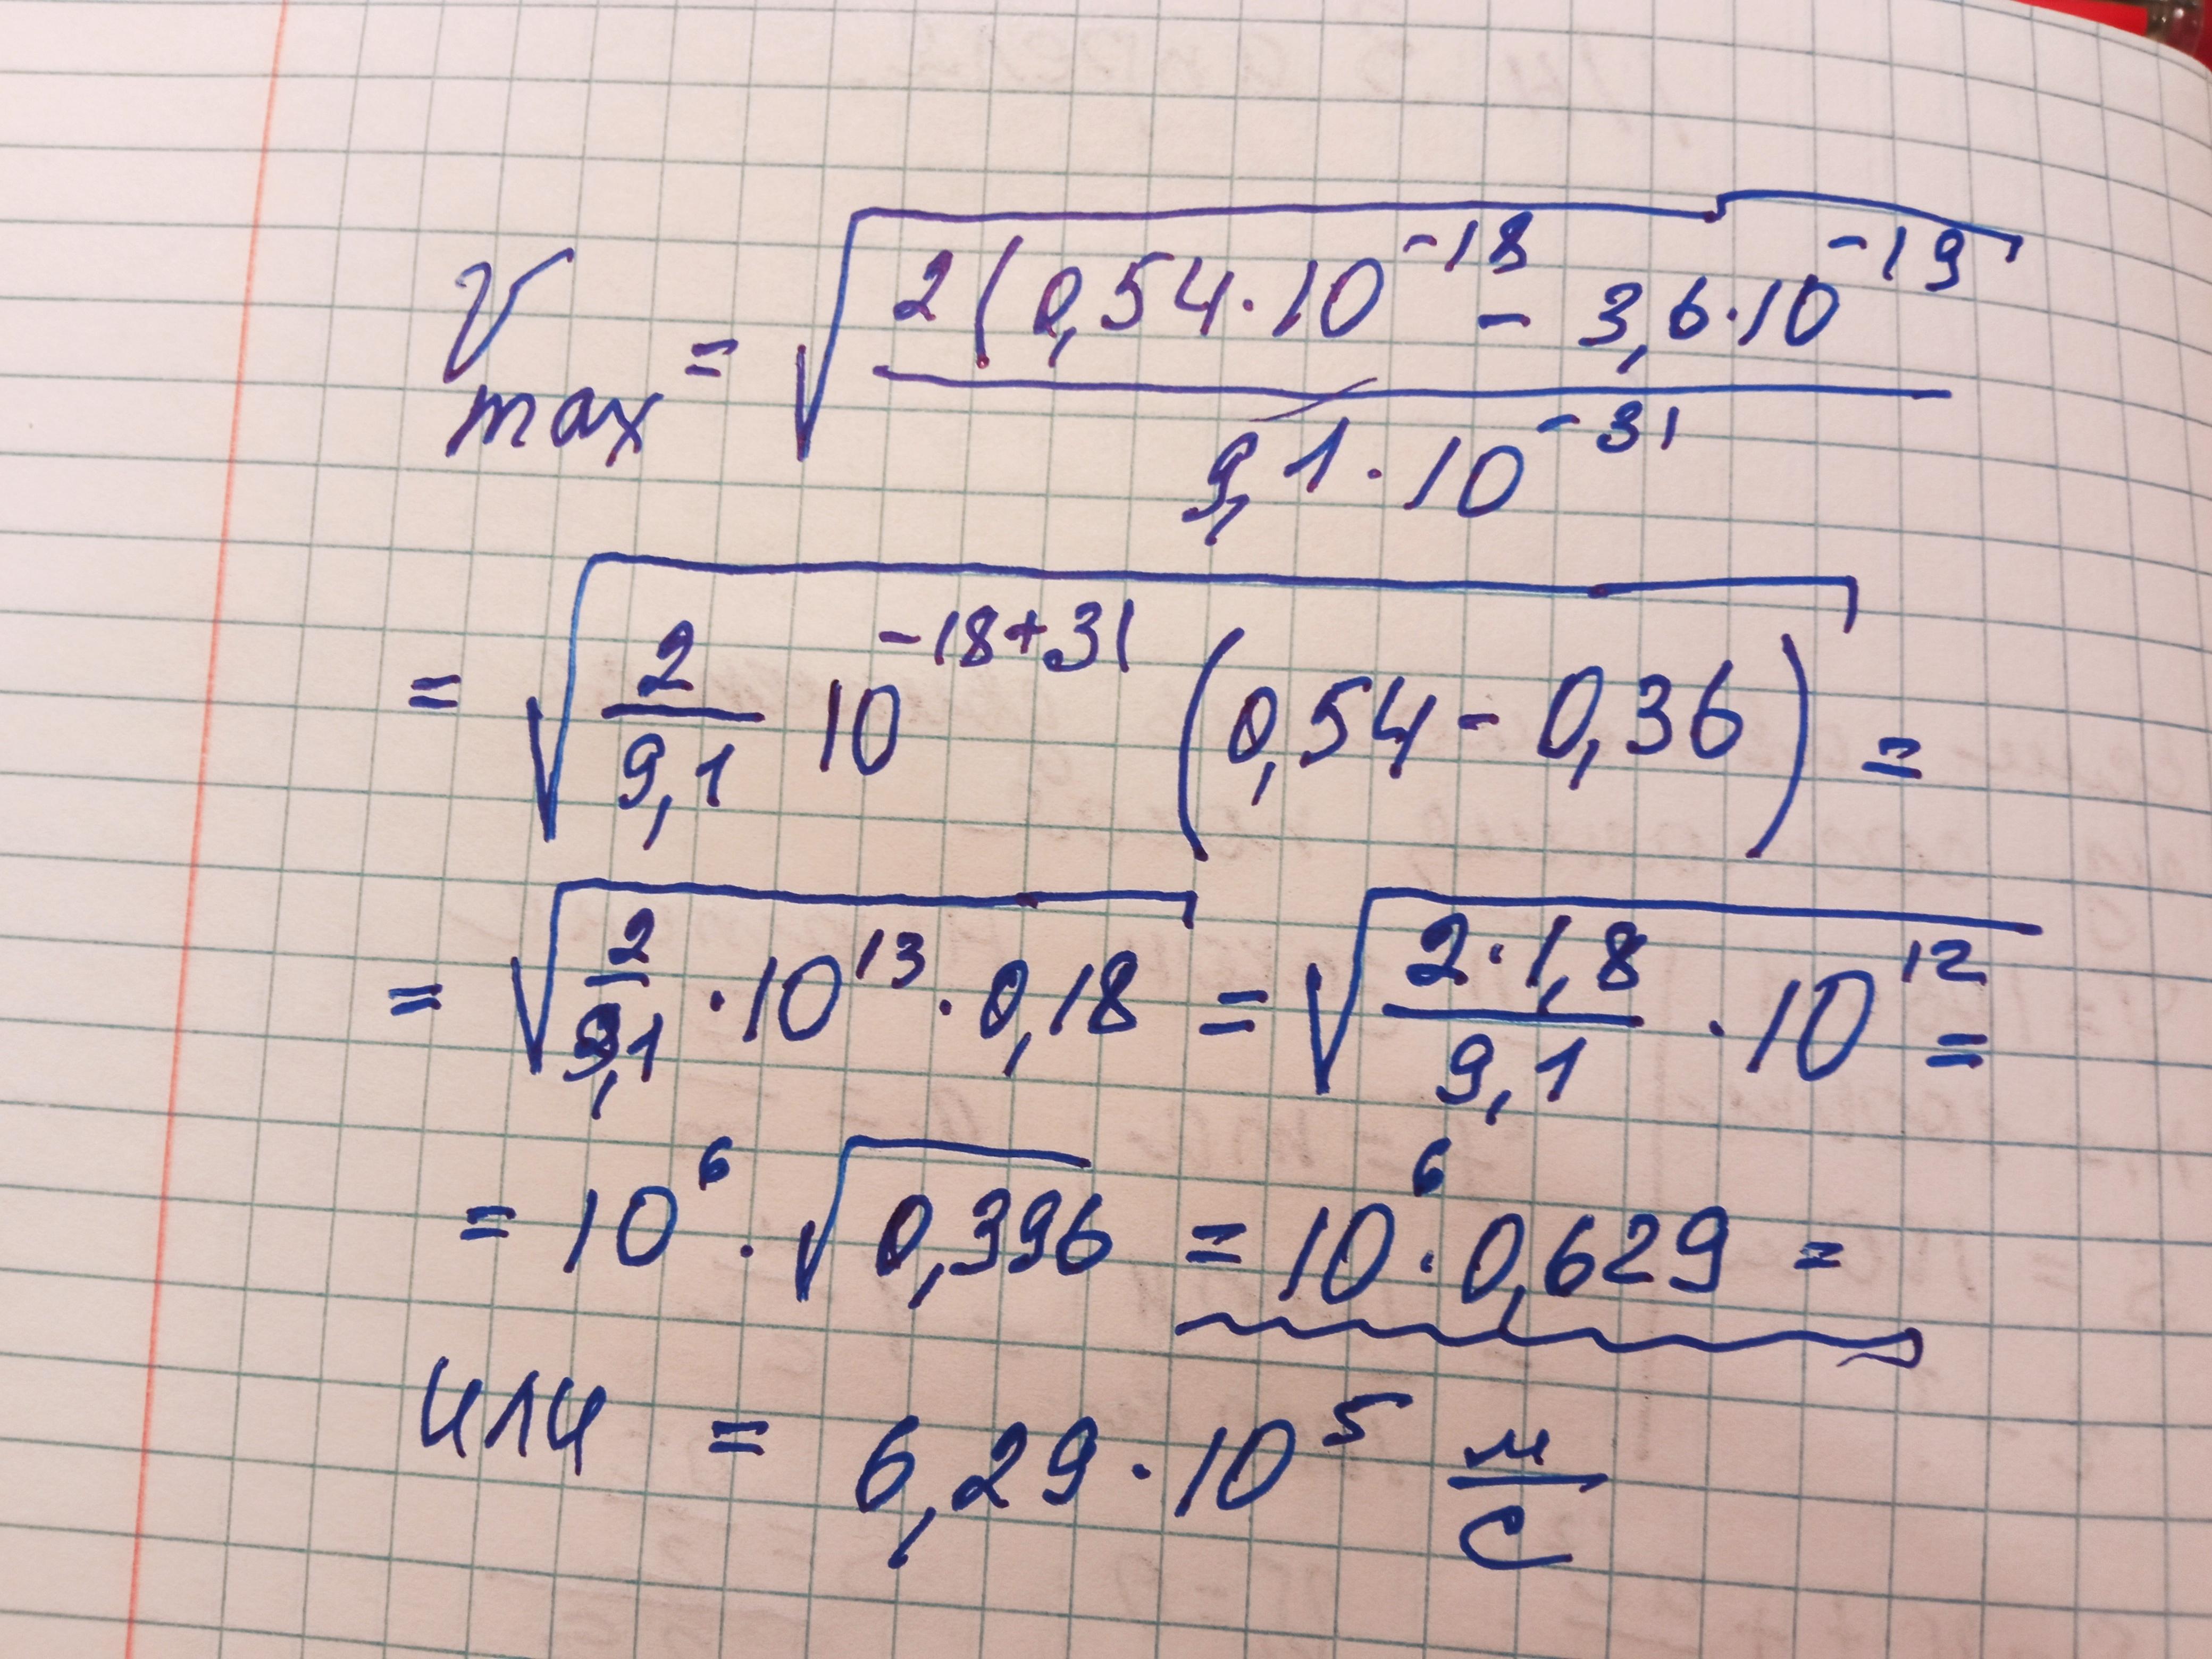 V max = √(2(0,54·10^-18 - 3,6·10^-19 / 9,1·10^-31)
= √(2/9,1 10^-18+31 (0,54 - 0,36)) =
= √(2/9,1 · 10^13 · 0,18) = √(2·1,8/9,1 · 10^12) =
= 10^6 · √0,396 = 10^6 · 0,629 =
или = 6,29 · 10^5 м/с